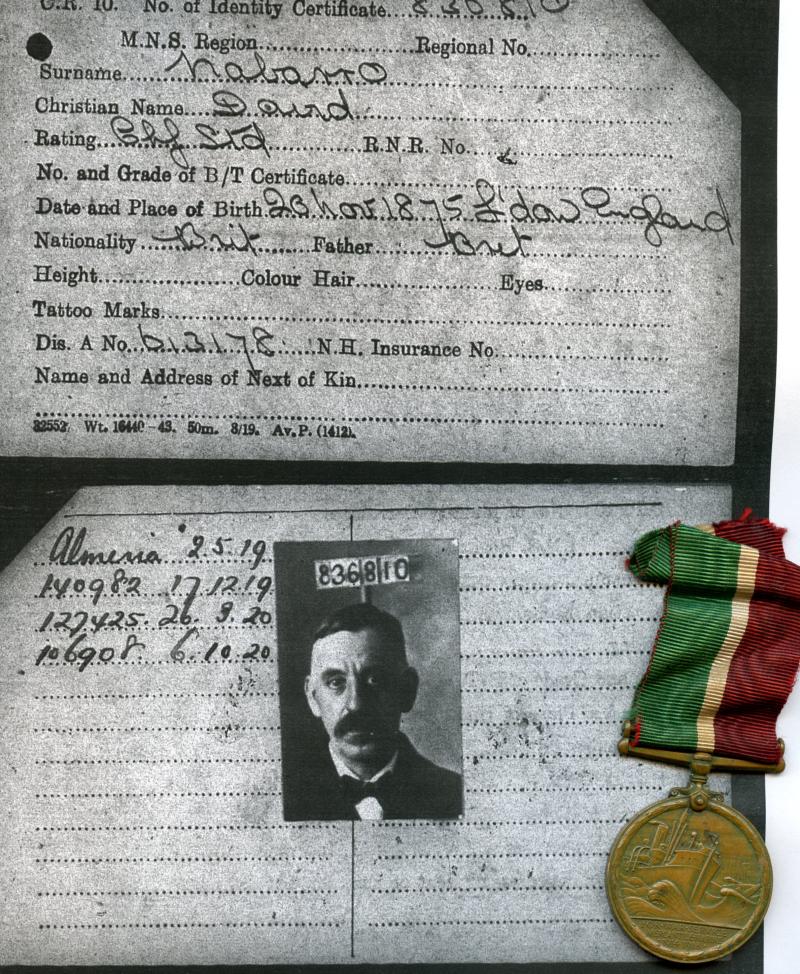 C.R. 10. No. of Identity Certificate...836810
M.N.S. Region............Regional No.
Surname......Nabarro
Christian Name...David
Rating...Chf Std...R.N.R. No.
No. and Grade of B/T Certificate
Date and Place of Birth 23 Nov 1875 L'don England
Nationality....Brit....Father....Brit
Height............Colour Hair............Eyes
Tattoo Marks
Dis. A No. 613178....N.H. Insurance No.
Name and Address of Next of Kin
32552. Wt. 16440-43. 50m. 3/19. Av.P. (1412).
Almeria 2 5 19
140982 17 12 19
127425. 26. 3 20
106908 6. 10. 20
836810